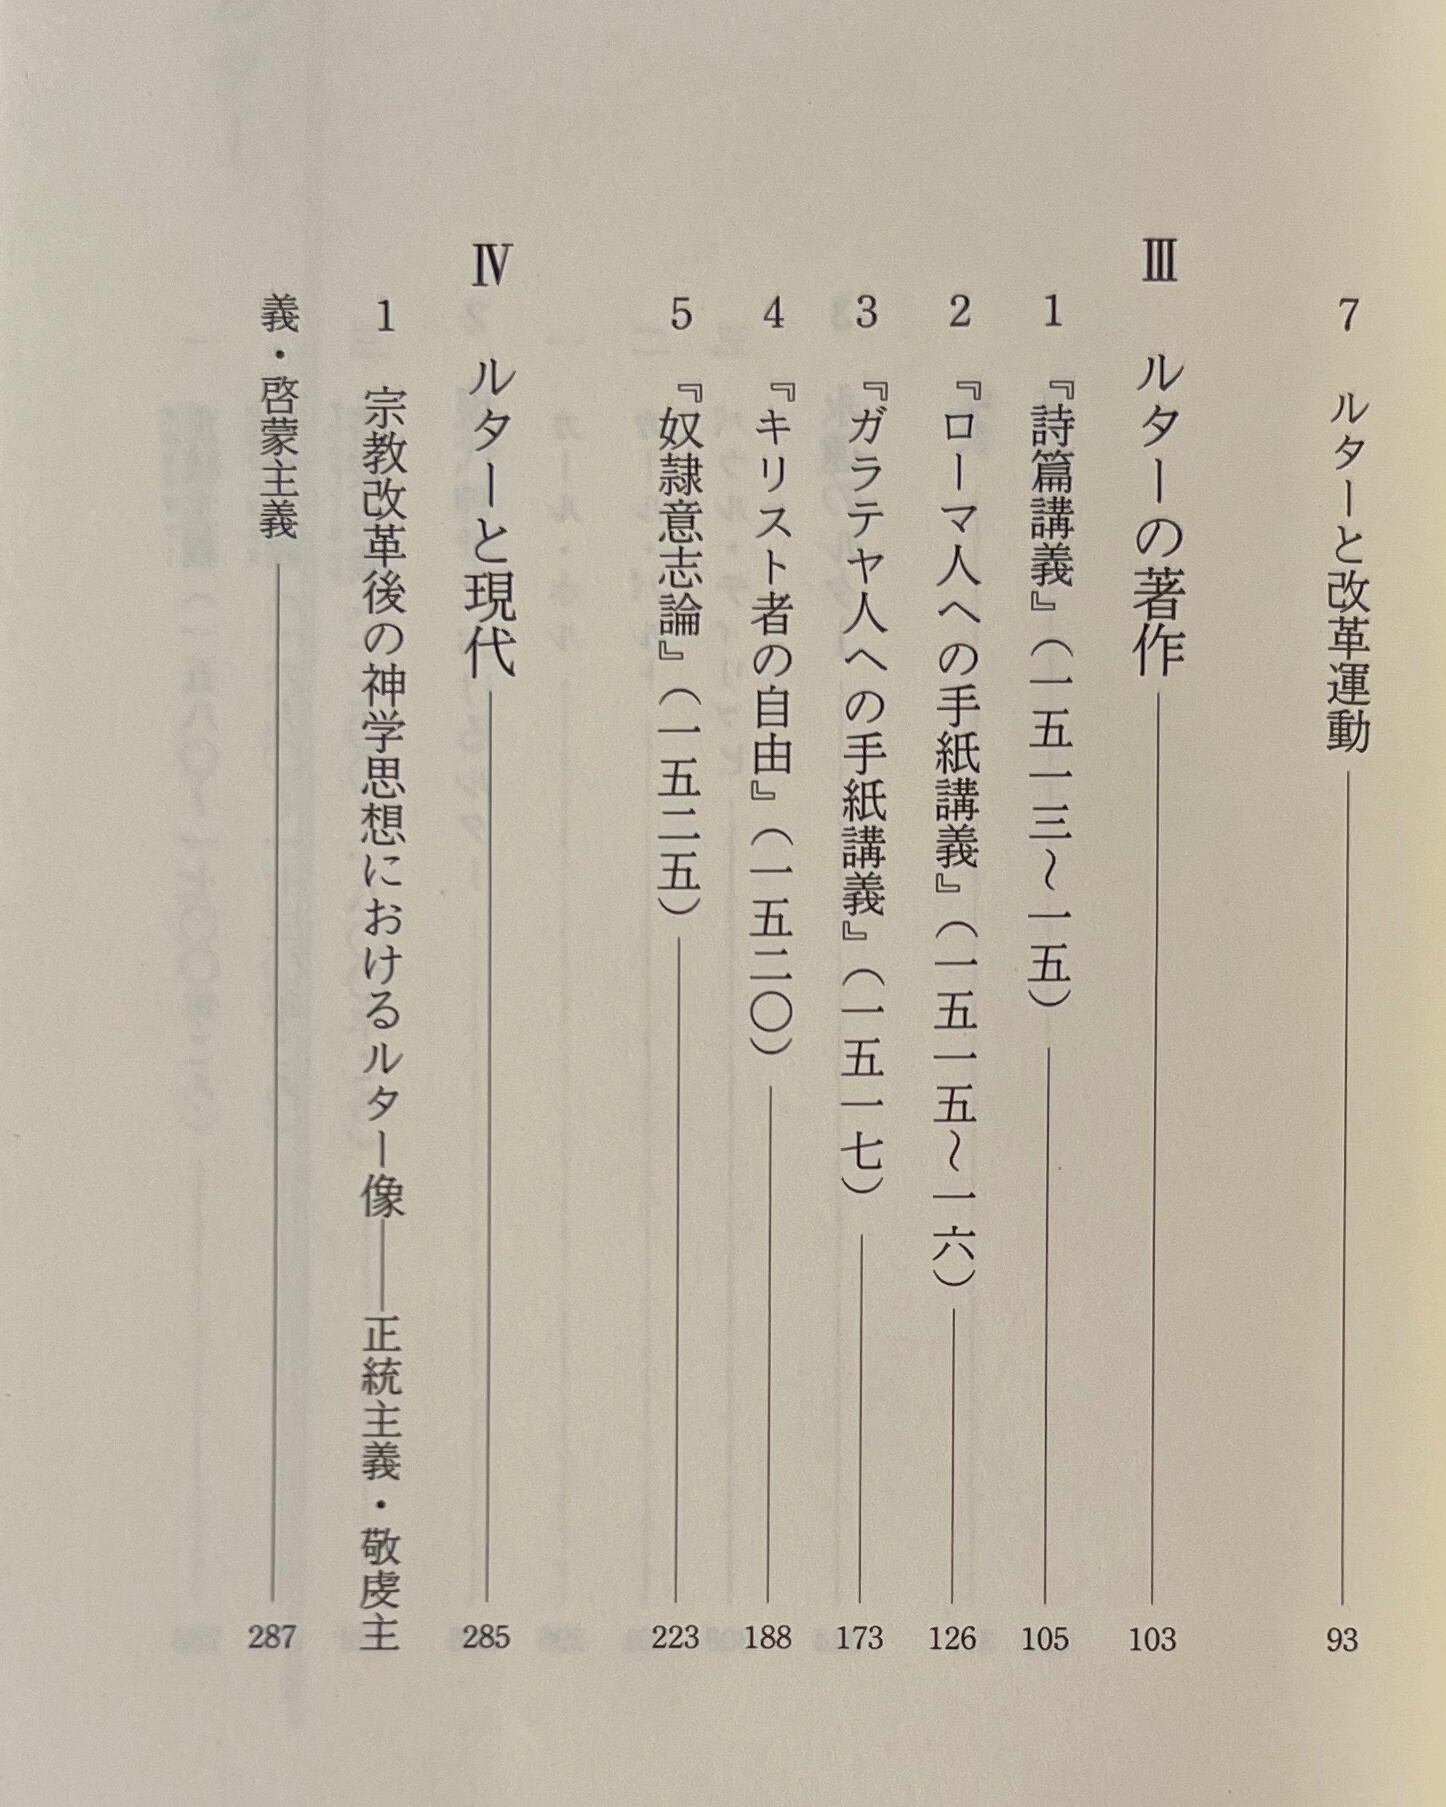 7　ルターと改革運動 93
Ⅲ　ルターの著作 103
1　『詩篇講義』（一五一三～一五） 105
2　『ローマ人への手紙講義』（一五一五～一六） 126
3　『ガラテヤ人への手紙講義』（一五一七） 173
4　『キリスト者の自由』（一五二〇） 188
5　『奴隷意志論』（一五二五） 223
Ⅳ　ルターと現代 285
1　宗教改革後の神学思想におけるルター像――正統主義・敬虔主
義・啓蒙主義 287